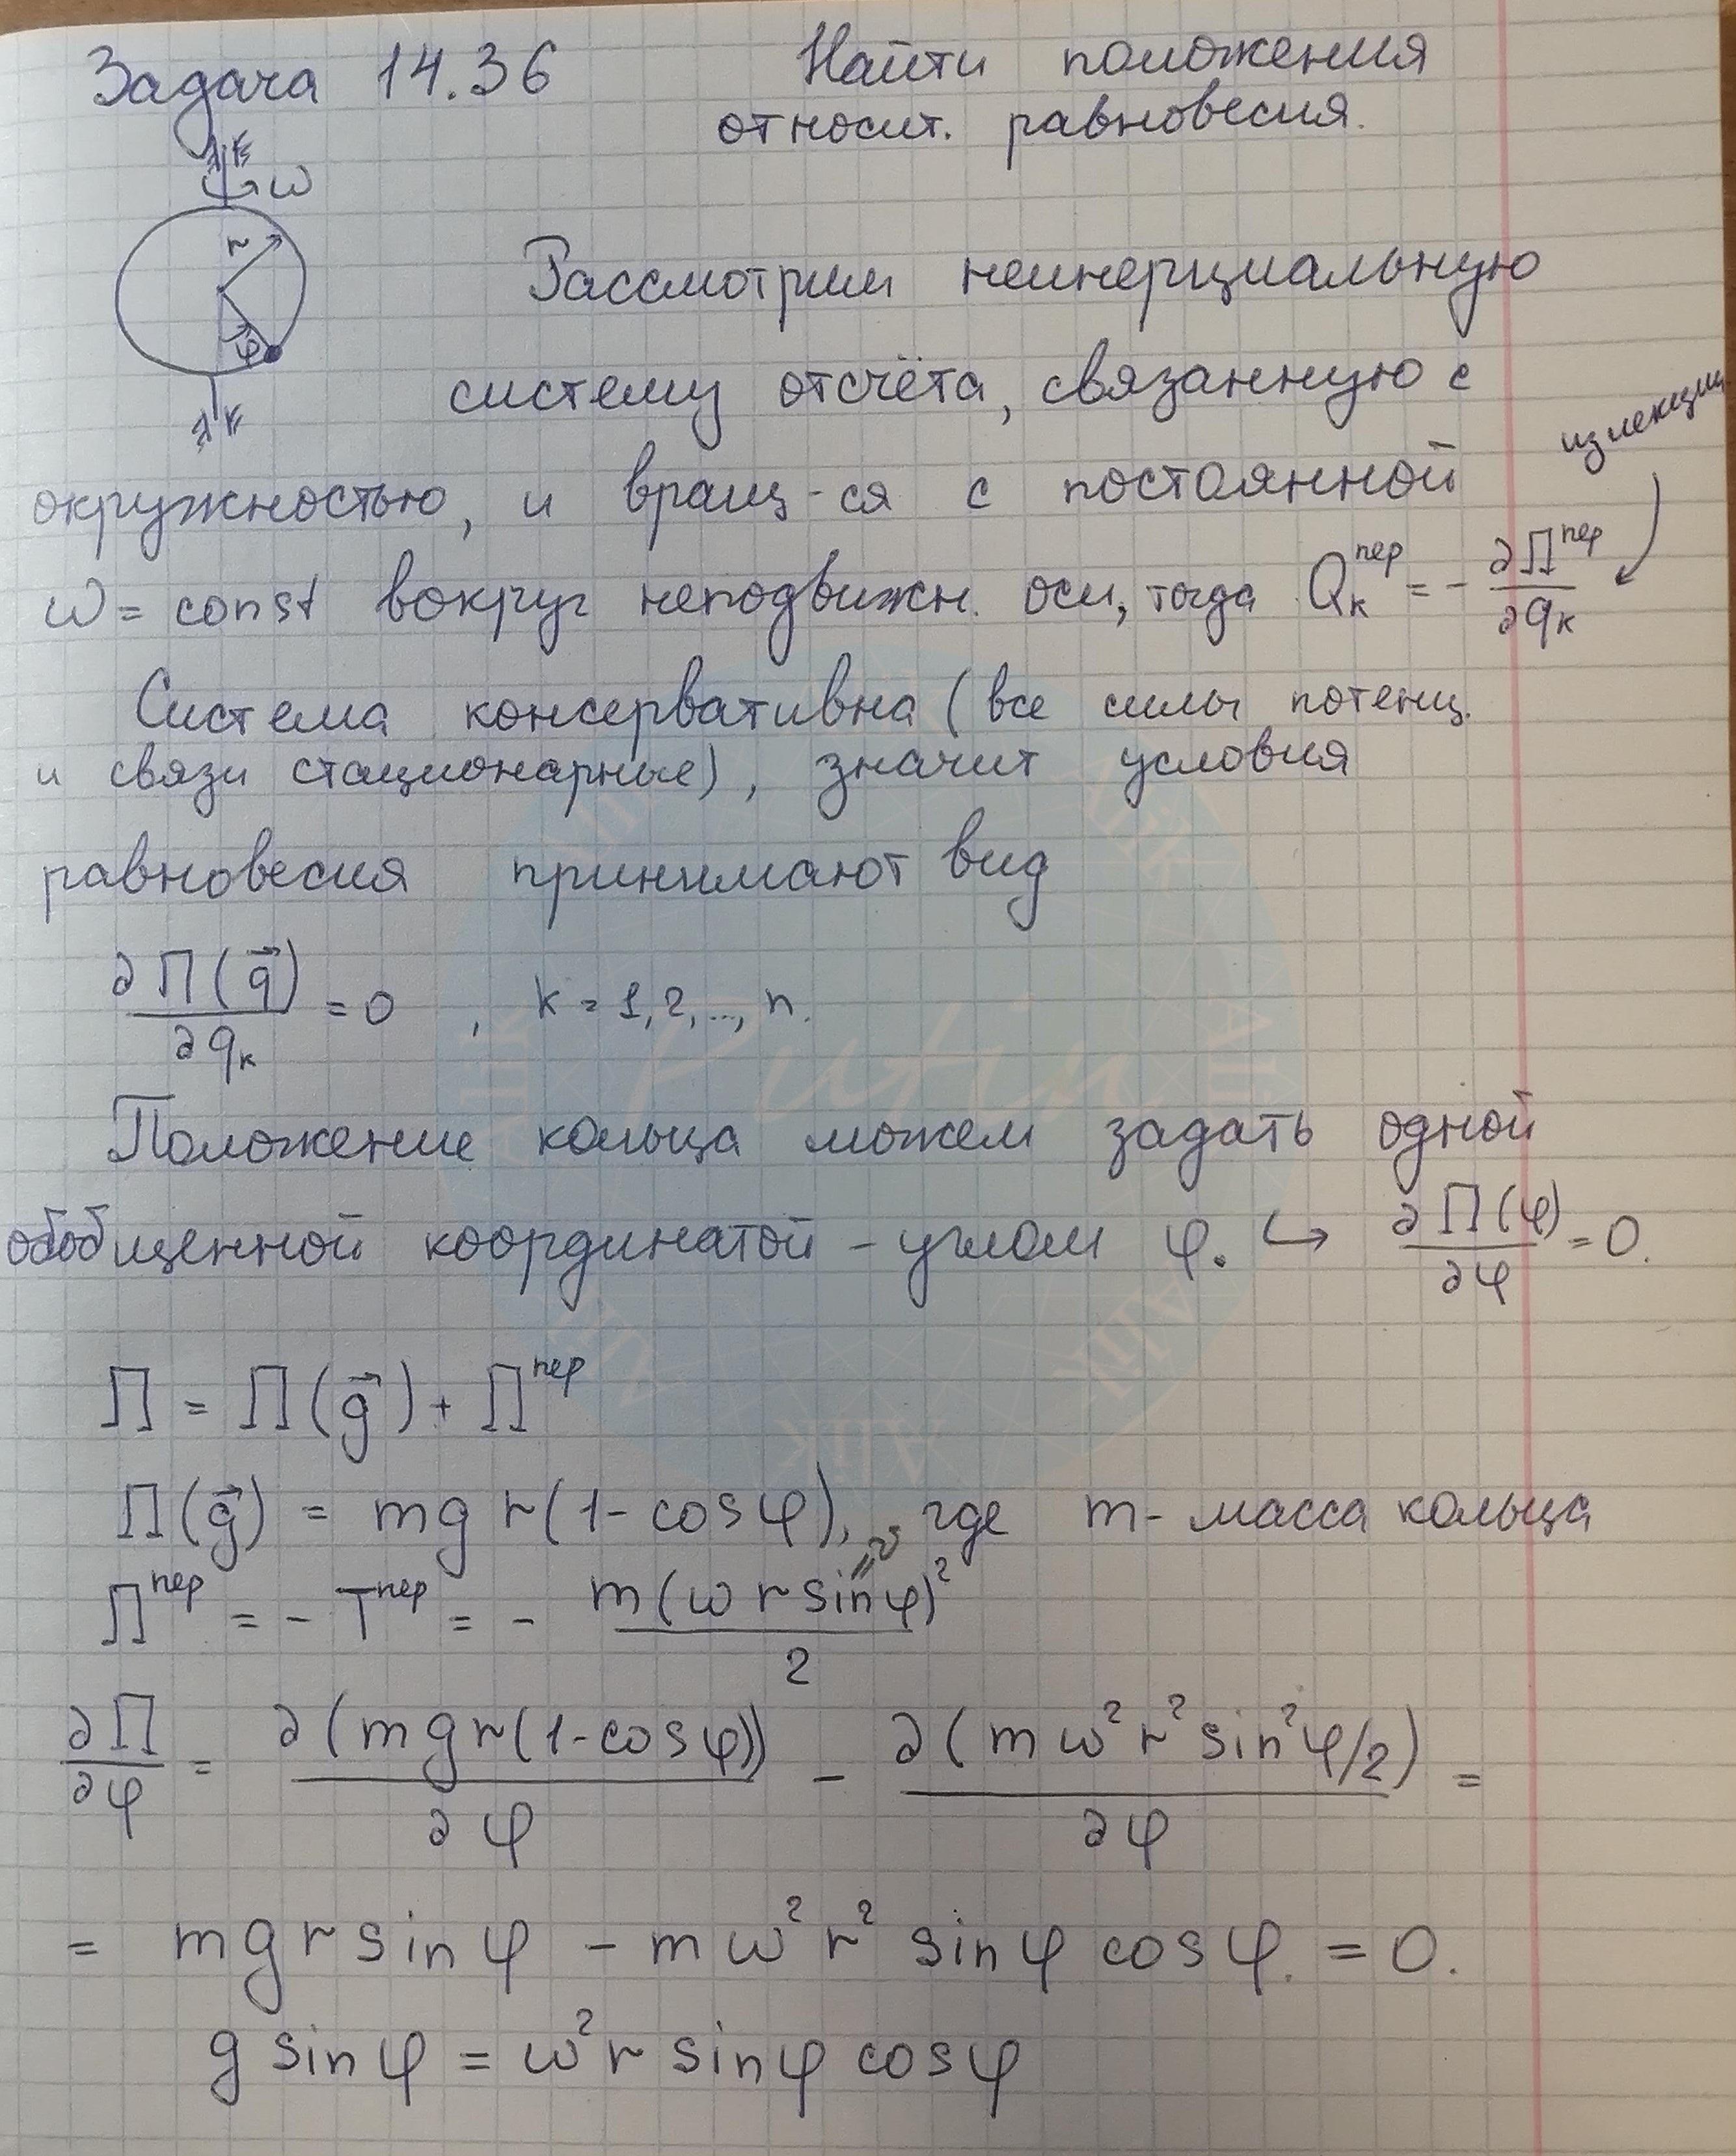 Задача 14.36
Найти положения
относит. равновесия.
ω
r
φ
Рассмотрим неинерциальную
систему отсчёта, связанную с
из лекции
окружностью, и вращ-ся с постоянной
ω = const вокруг неподвижн. оси, тогда Qₖᵖᵉʳ = - ∂Пᵖᵉʳ/∂qₖ
Система консервативна (все силы потенц.
и связи стационарные), значит условия
равновесия принимают вид
∂П(q⃗)/∂qₖ = 0 , k = 1, 2, ..., n.
Положение кольца можем задать одной
обобщенной координатой - углом φ. ↪ ∂П(φ)/∂φ = 0.
П = П(g⃗) + Пᵖᵉʳ
П(g⃗) = mgr(1-cosφ), где m - масса кольца
Пᵖᵉʳ = - Tᵖᵉʳ = - m(ωr sinφ)²/2
∂П/∂φ = ∂(mgr(1-cosφ))/∂φ - ∂(mω²r² sin²φ/2)/∂φ =
= mgr sinφ - mω²r² sinφ cosφ. = 0.
g sinφ = ω²r sinφ cosφ
Putin
Alik
Alik
Alik
Alik
Alik